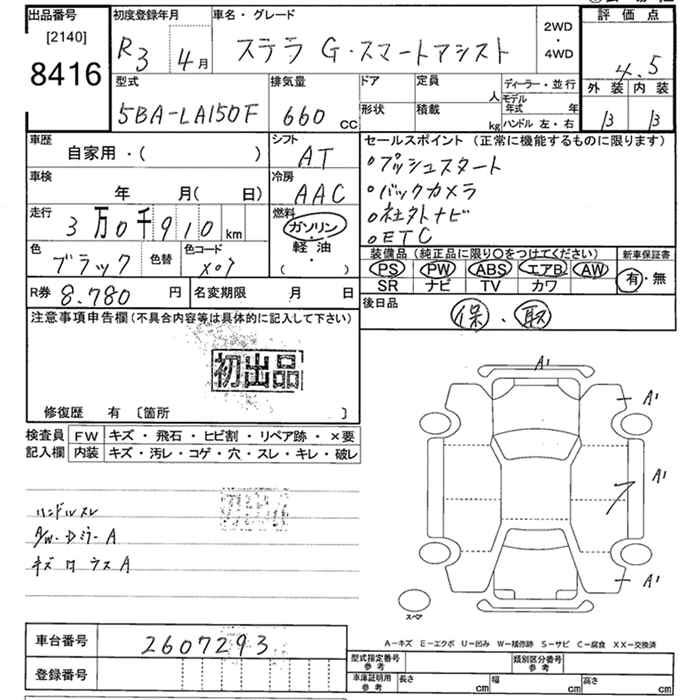 出品番号 初度登録年月 車名・グレード 2WD・4WD 評価点
[2140] R3 4月 ステラ G・スマートアシスト 4.5
8416 型式 排気量 ドア 定員 人 ディーラー・並行 外装 内装
5BA-LA150F 660 CC 形状 積載 kg モデル年式 年 ハンドル 左・右 B B
車歴 シフト セールスポイント(正常に機能するものに限ります)
自家用・( ) AT ○プッシュスタート
車検 冷房 ○バックカメラ
年 月( 日) AAC ○社外ナビ
走行 燃料 ○ETC
3万0千910km ガソリン
軽油・( )
色 色替 色コード 装備品(純正品に限り○をつけてください) 新車保証書
ブラック X07 PS PW ABS エアB AW 有・無
SR ナビ TV カワ
R券 8.780円 名変期限 月 日 後日品 保・取
注意事項申告欄(不具合内容等は具体的に記入して下さい)
初出品
修復歴 有〔箇所 〕
検査員記入欄 FW キズ・飛石・ヒビ割・リペア跡・×要
内装 キズ・汚レ・コゲ・穴・スレ・キレ・破レ
A1
A1
A1
A1
ハンドルスレ
A/W・Dミラー A
スペア
車台番号 2607293
A-キズ E-エクボ U-凹み W-補修跡 S-サビ C-腐食 XX-交換済
登録番号
型式指定番号 参考 類別区分番号 参考
車庫証明用 参考 長さ cm 幅 cm 高さ cm